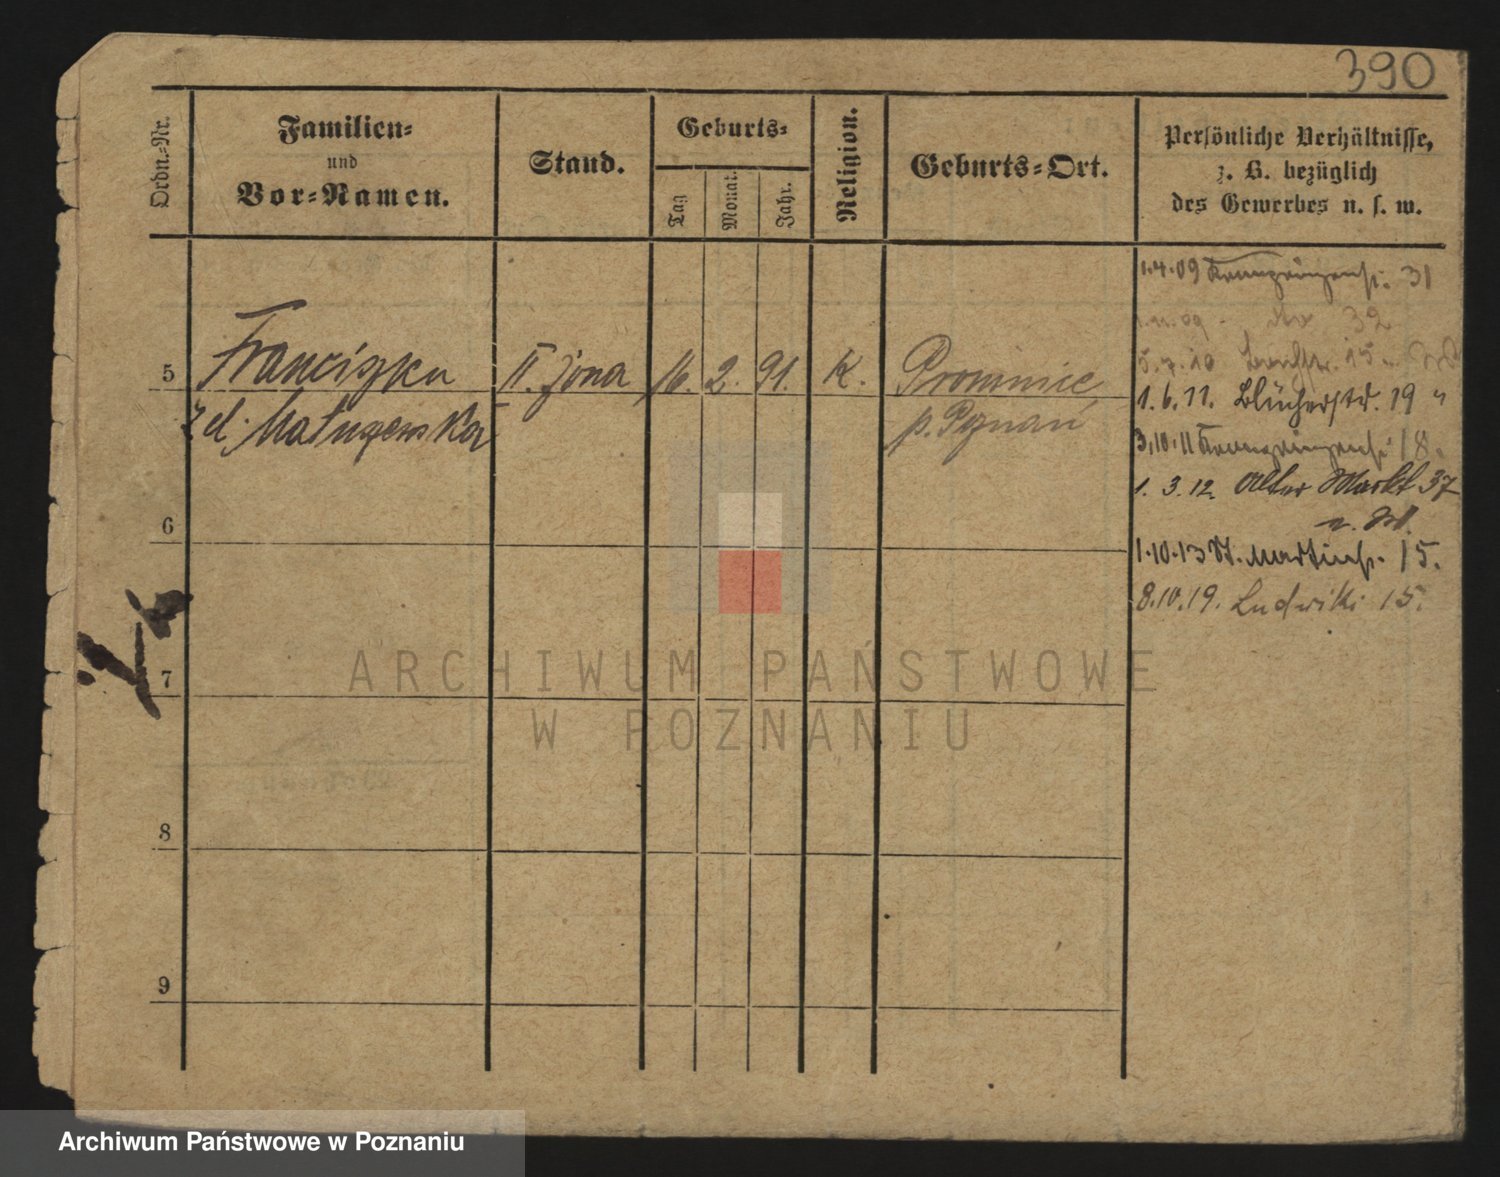 390
Ordn.-Nr.
Familien-
und
Vor-Namen.
Stand.
Geburts-
Tag
Monat.
Jahr.
Religion.
Geburts-Ort.
Persönliche Verhältnisse,
z. B. bezüglich
des Gewerbes u. s. w.
5
Franciszka
II. żona
16. 2. 91.
K.
z d.
p. Pznań
6
7
8
9
1.4.09 Kronprinzenstr. 31
1.11.09 - 32
5.7.10 15
1. 6. 11. Blücherstr. 19 "
3.10.11 Kronprinzenstr. 18.
1. 3. 12. Alter Markt 37
1.10.13 St. Martinstr. 15.
8.10.19. Ludwiki 15.
ARCHIWUM PAŃSTWOWE
W POZNANIU
Archiwum Państwowe w Poznaniu